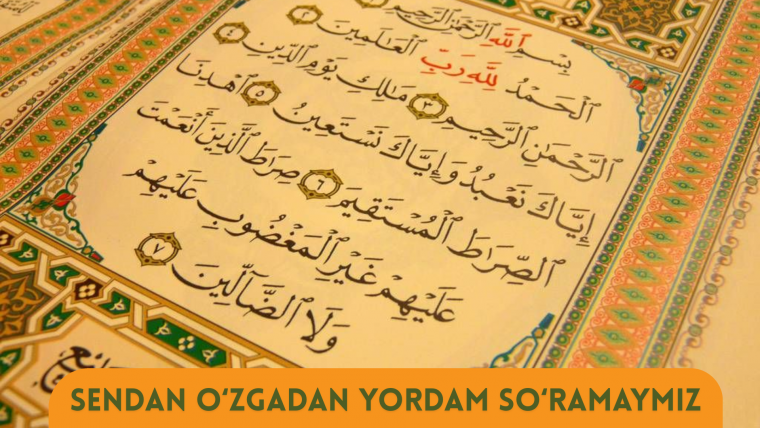 بِسْمِ ٱللَّهِ ٱلرَّحْمَٰنِ ٱلرَّحِيمِ ١
ٱلْحَمْدُ لِلَّهِ رَبِّ ٱلْعَٰلَمِينَ ٢
ٱلرَّحْمَٰنِ ٱلرَّحِيمِ ٣ مَٰلِكِ يَوْمِ ٱلدِّينِ ٤
إِيَّاكَ نَعْبُدُ وَإِيَّاكَ نَسْتَعِينُ ٥ ٱهْدِنَا
ٱلصِّرَٰطَ ٱلْمُسْتَقِيمَ ٦ صِرَٰطَ ٱلَّذِينَ أَنْعَمْتَ
عَلَيْهِمْ غَيْرِ ٱلْمَغْضُوبِ عَلَيْهِمْ
وَلَا ٱلضَّآلِّينَ ٧
SENDAN OʻZGADAN YORDAM SOʻRAMAYMIZ